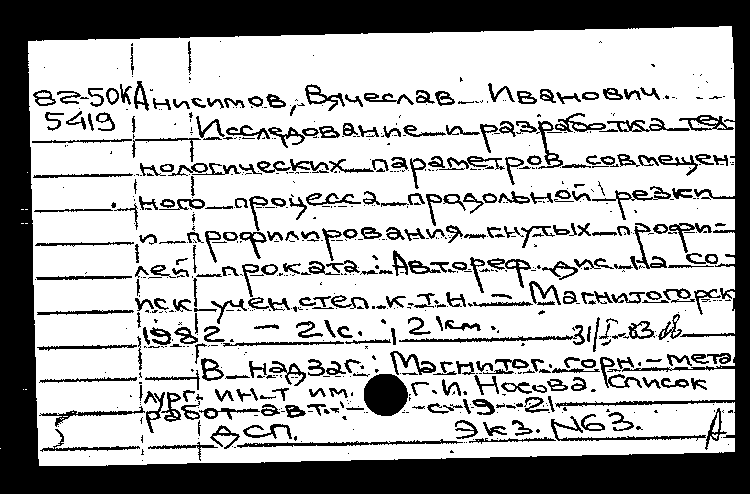 82-50К Анисимов, Вячеслав Иванович.
5419 Исследование и разработка тех-
нологических параметров совмещен-
ного процесса продольной резки
и профилирования гнутых профи-
лей проката: Автореф. дис. на со-
иск. учен. степ. к.т.н. – Магнитогорск,
1982. – 21с.; 21км. 31/I-83
В надзаг: Магнитог. горн.-мета
лург. ин-т им. Г.И. Носова. Список
работ авт.: с. 19-21.
ДСП. Экз. N63. А